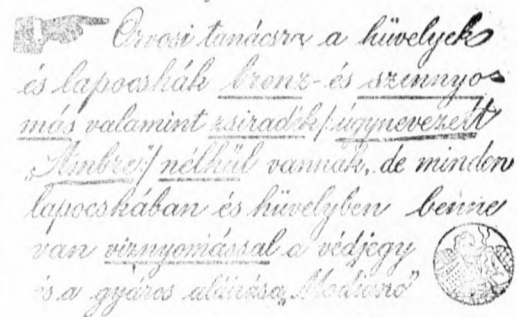 Orvosi tanácsra a hüvelyek
és lapocskák brenz- és szennyo-
más valamint zsiradék /: úgynevezett
„Ambre” :/ nélkül vannak, de minden
lapocskában és hüvelyben benne
van víznyomással a védjegy
és a gyáros aláírása „Modiano”